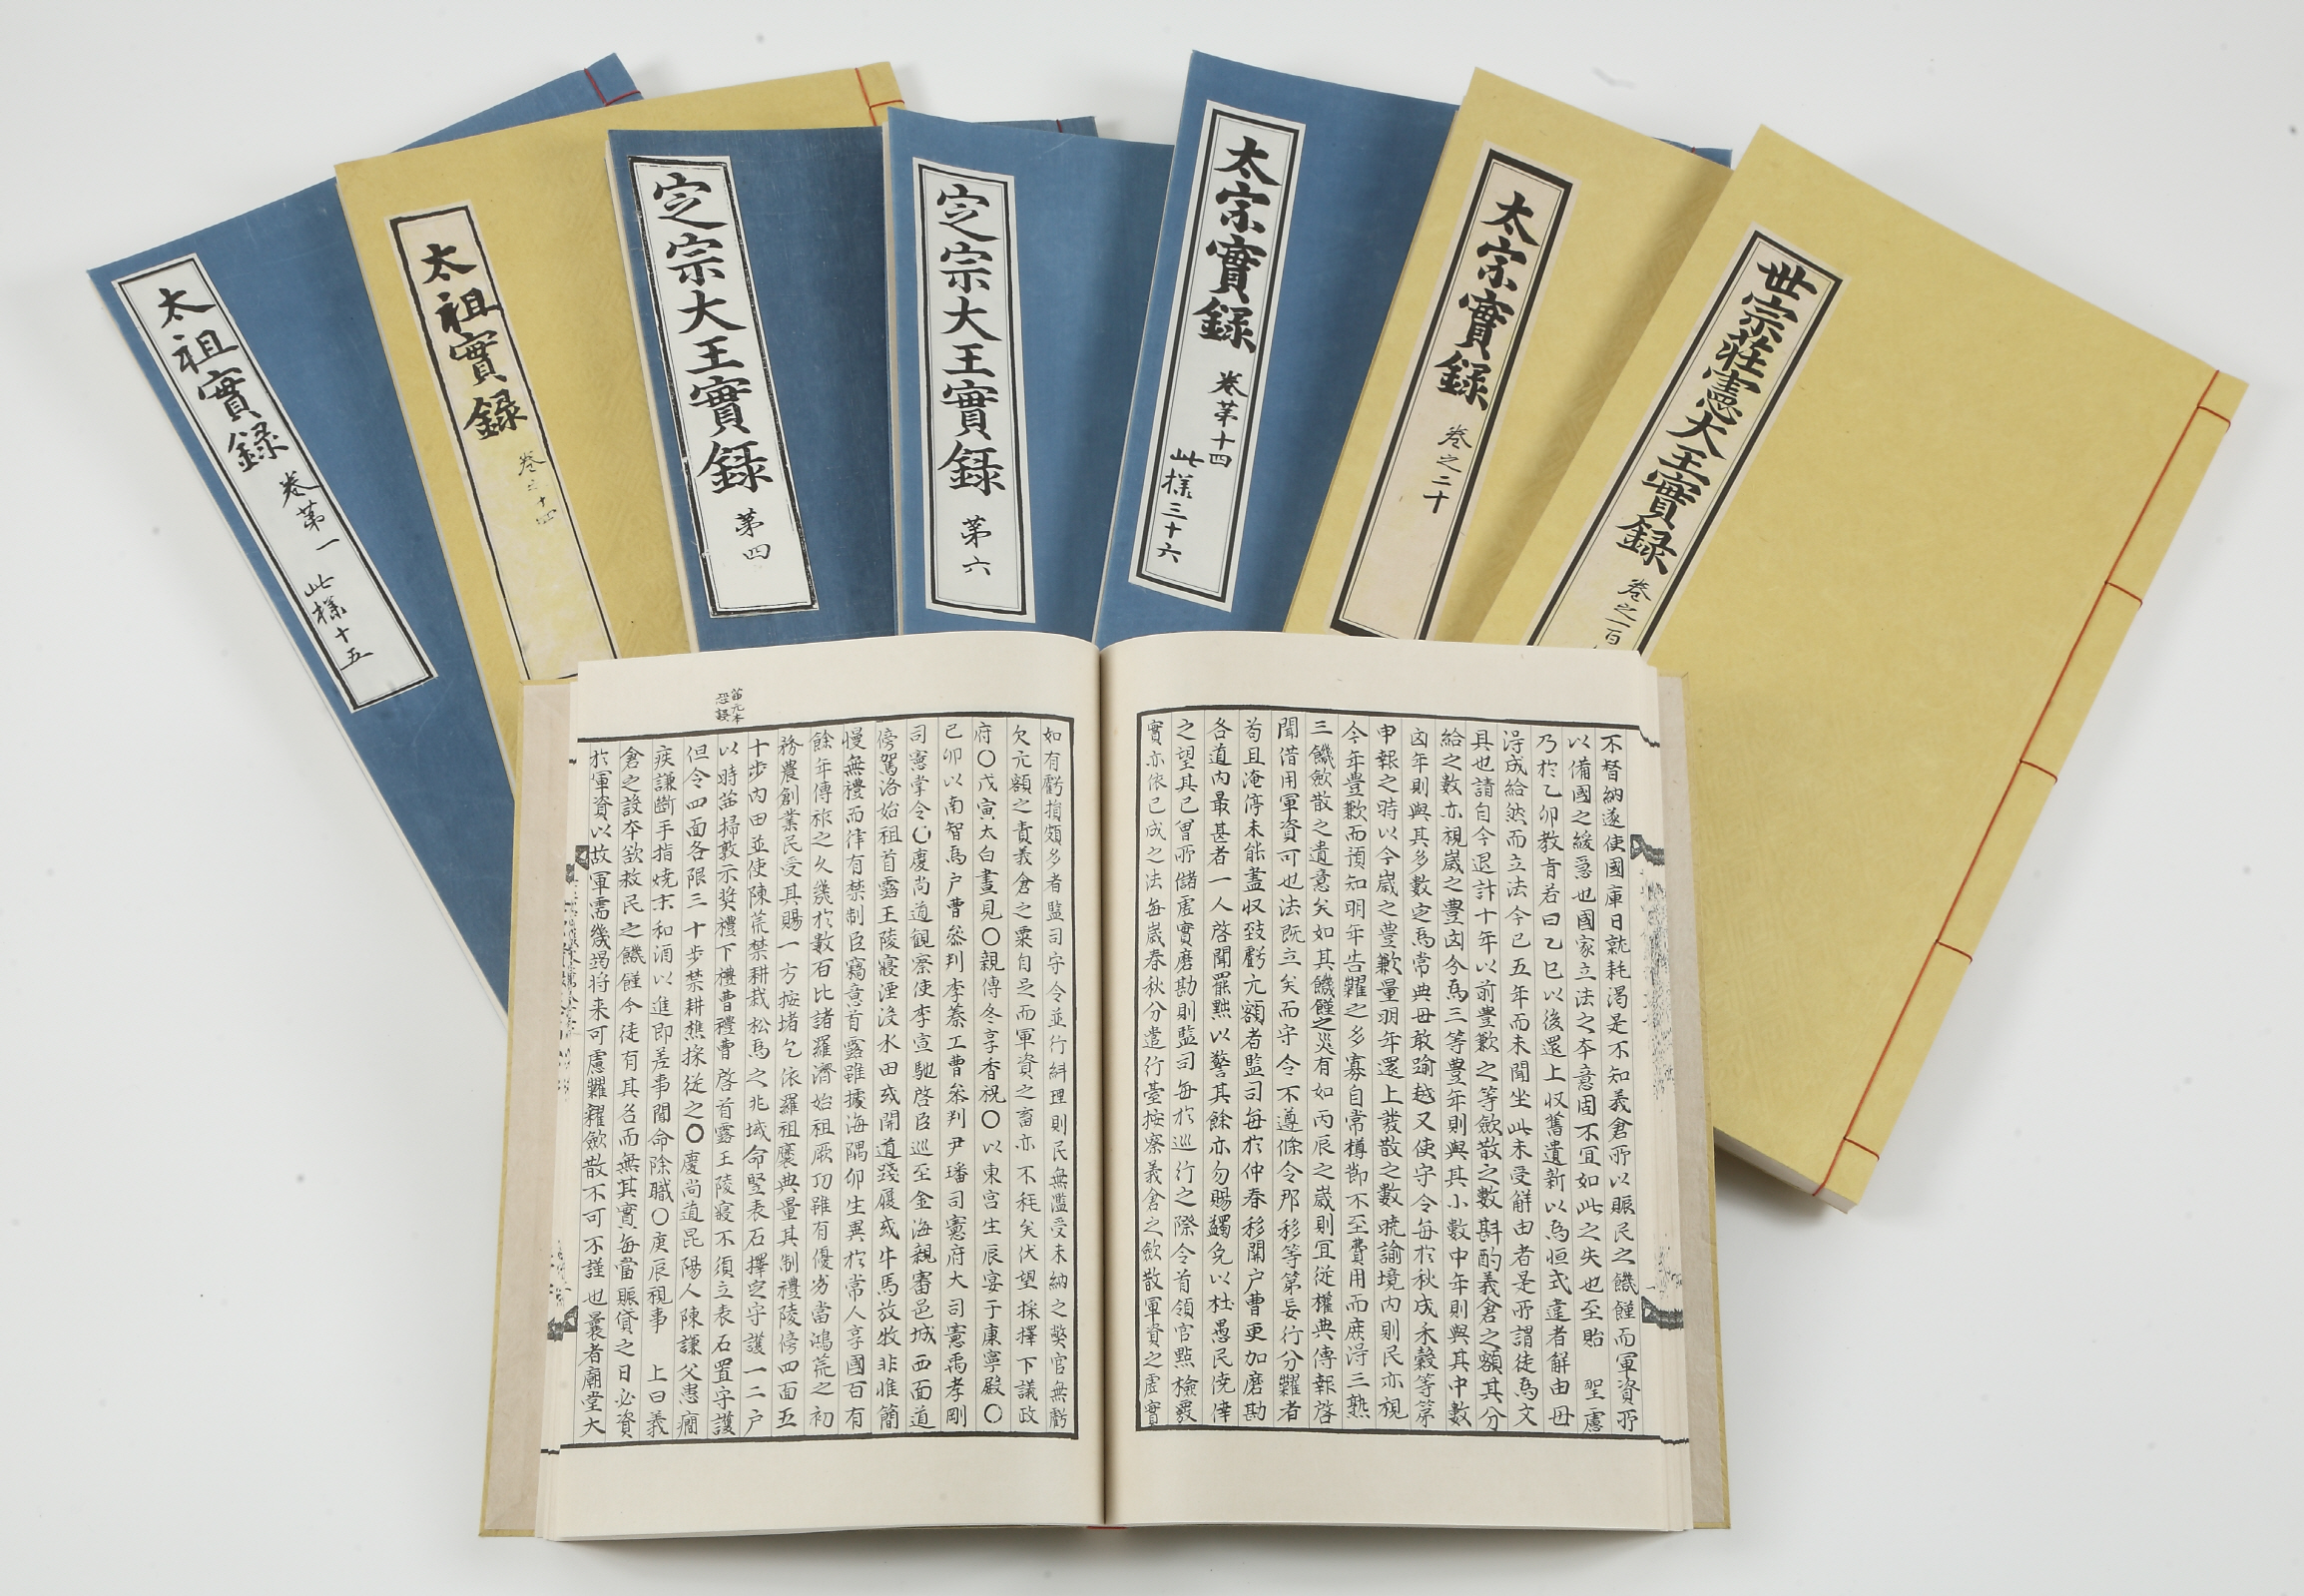 太祖實録 卷第一 此樣十五
太祖實録 卷之十四
定宗大王實録 第四
定宗大王實録 第六
太宗實録 卷第十四 此樣三十六
太宗實録 卷之二十
世宗莊憲大王實録 卷之一百
不督納遂使國庫日就耗渴是不知義倉所以賑民之饑饉而軍資所
以備國之緩急也國家立法之本意固不宜如此之失也至貽 聖慮
乃於乙卯教旨若曰乙巳以後還上収舊遺新以為恒式違者解由毋
淂成給然而立法今已五年而未聞坐此未受觧由者是所謂徒為文
具也請自今退計十年以前豊歉之等歛散之數斟酌義倉之額其分
給之數亦視嵗之豊凶分為三等豊年則與其小數中年則與其中數
凶年則與其多數定為常典毋敢踰越又使守令每於秋成禾穀等第
申報之時以今嵗之豊歉量明年還上裁散之數曉諭境内則民亦視
今年豊歉而預知明年告糶之多寡自常樽節不至費用而庶淂三熟
三饑歛散之遺意矣如其饑饉之災有如丙辰之嵗則宜從權典傳報啓
聞借用軍資可也法既立矣而守令不遵條令那移等第妄行分糶者
苟且淹停未能盡収致虧元額者監司每於仲春移關户曹更加磨勘
各道内最甚者一人啓聞罷黜以警其餘亦勿賜蠲免以杜愚民僥倖
之望其已曾所儲虚實磨勘則監司每於巡行之際令首領官點檢覈
實亦依已成之法每嵗春秋分遣行臺按察義倉之歛散軍資之虚實
如有虧損頗多者監司守令並行糾理則民無濫受未納之弊官無虧
欠元額之責義倉之粟自足而軍資之畜亦不耗矣伏望採擇下議政
府○戊寅太白晝見○親傳冬享香祝○以東宫生辰宴于康寧殿○
己卯以南智為户曹叅判李蓁工曹叅判尹璠司憲府大司憲禹孝剛
司憲掌令○慶尚道觀察使李宣馳啓臣巡至金海親審邑城西面道
傍駕洛始祖首露王陵寢湮没水田或開道踐履或牛馬放牧非惟簡
慢無禮而律有禁制臣竊意首露雖據海隅卵生異於常人享國百有
餘年傳祚之久幾於數石比諸羅濟始祖厥功雖有優劣當鴻荒之初
務農創業民受其賜一方按堵乞依羅祖褒典量其制禮陵傍四面五
十步内田並使陳荒禁耕栽松為之兆域命竪表石擇定守護一二户
以時苗掃敦示奬禮下禮曹禮曹啓首露王陵寢不須立表石置守護
苗元本
恐誤
但令四面各限三十步禁耕樵採從之○慶尚道昆陽人陳謙父患癎
疾謙斷手指燒末和酒以進即差事聞命除職○庚辰視事 上曰義
倉之設本欲救民之饑饉今徒有其名而無其實每當賑貸之日必資
於軍資以故軍需幾竭将来可慮糶糴歛散不可不謹也曩者廟堂大